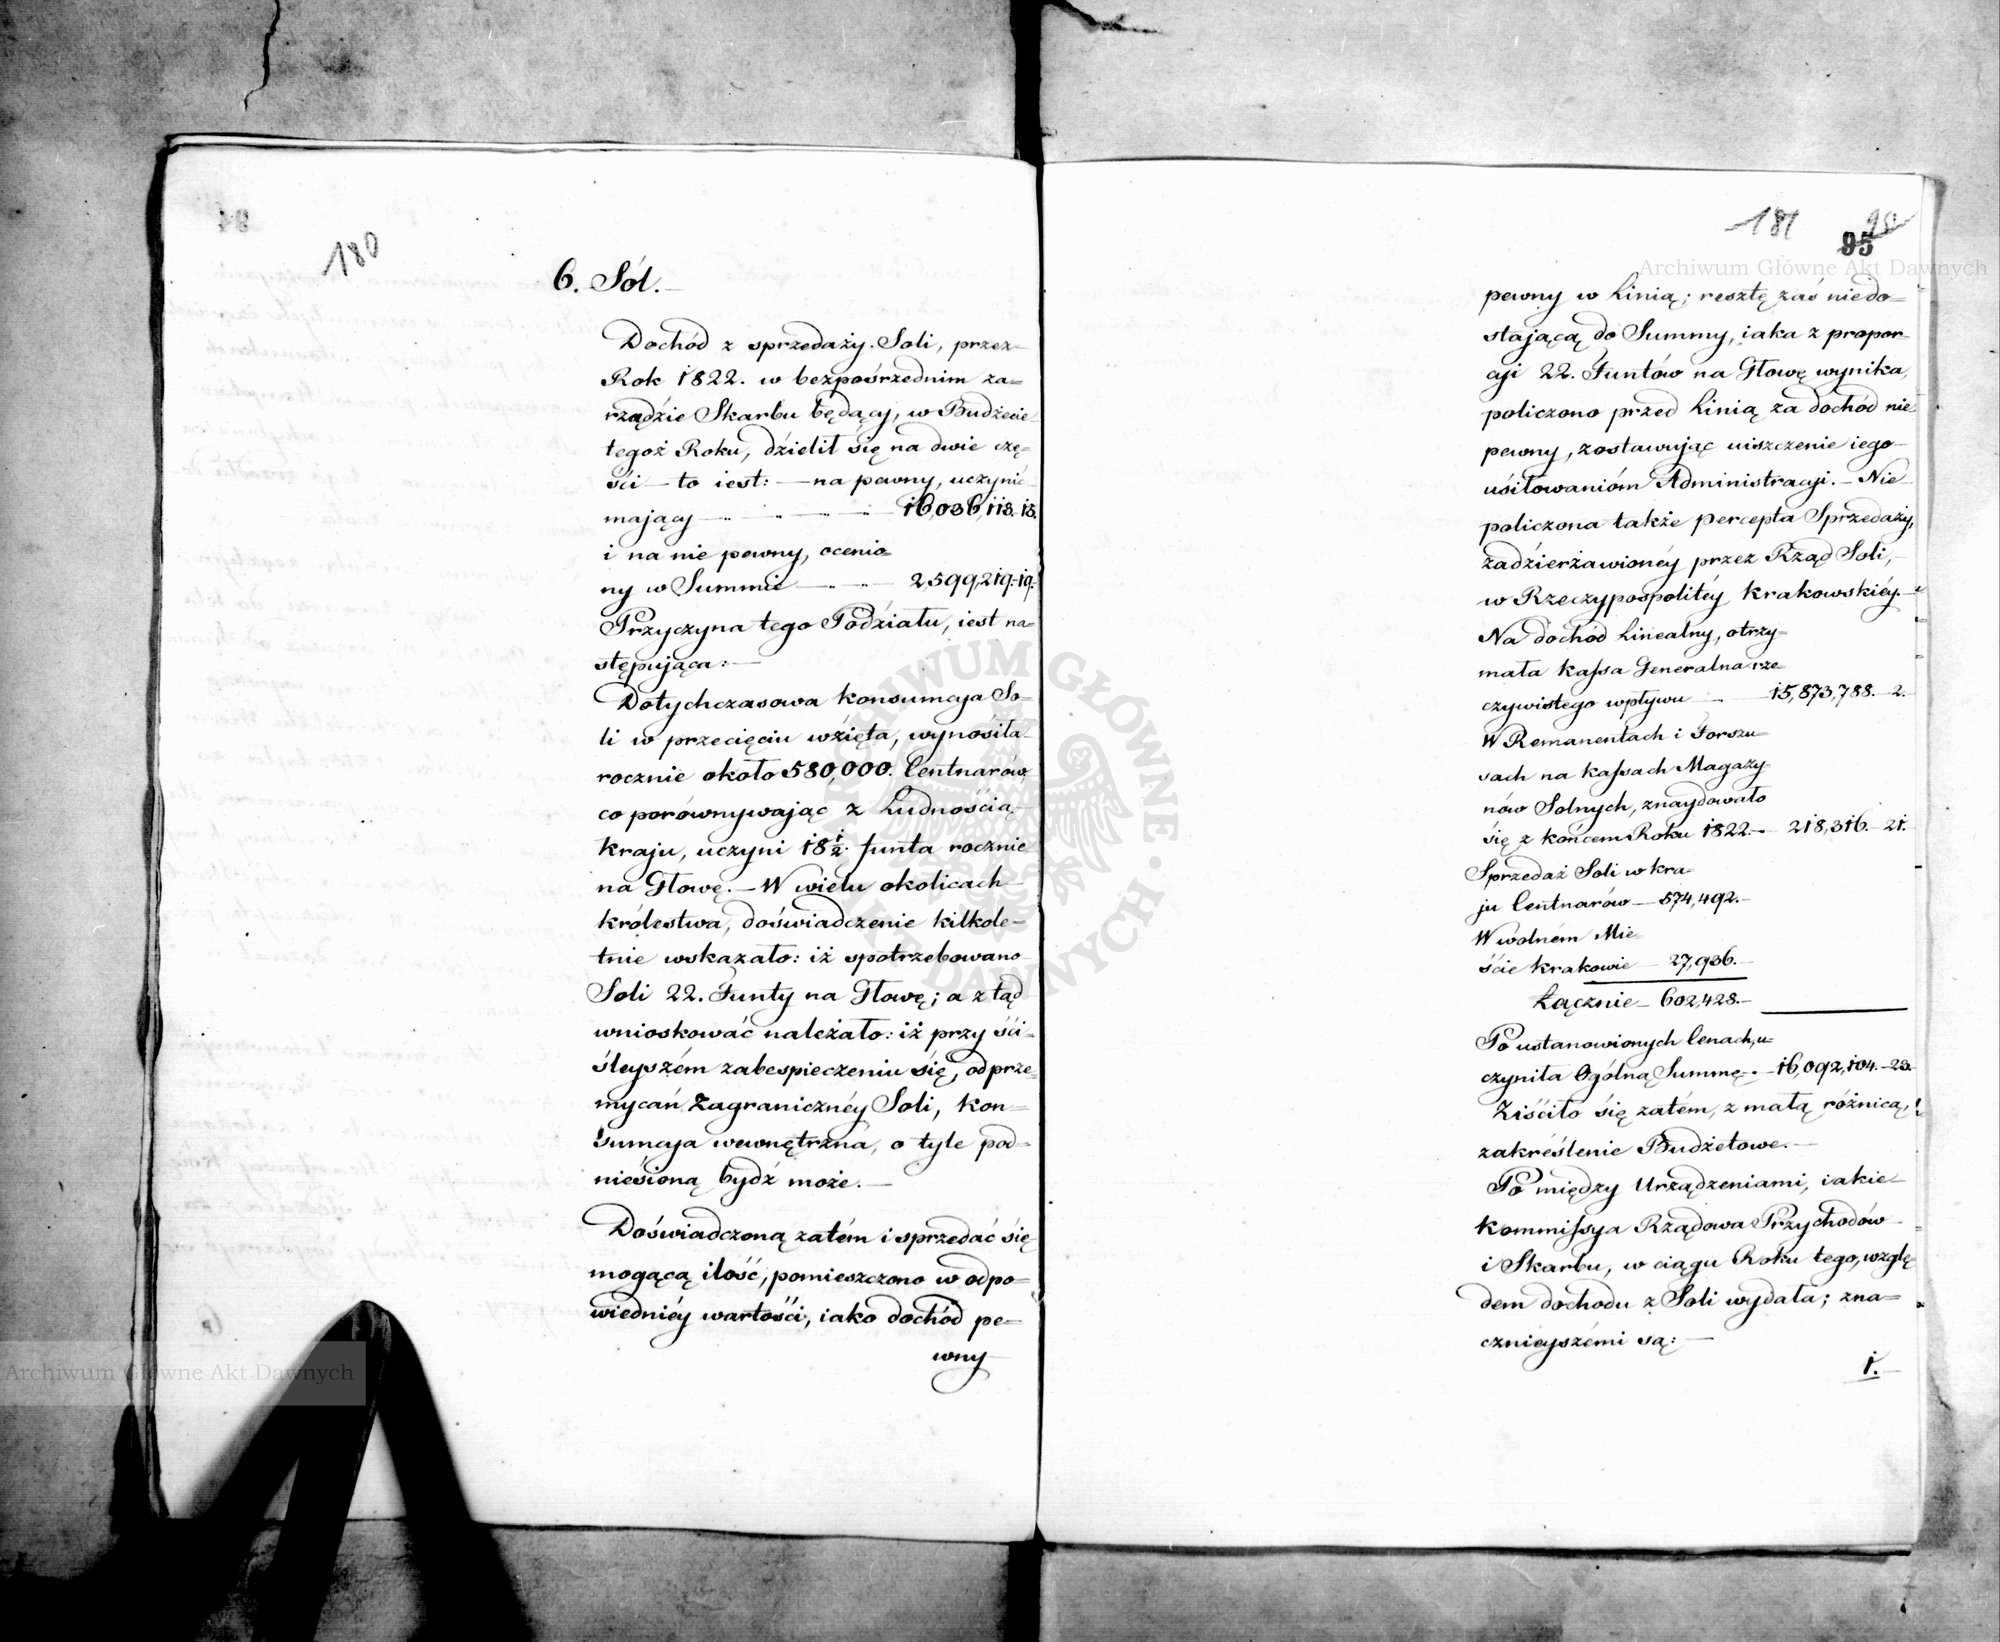 180
6. Sól.—
Dochód z sprzedaży Soli, przez
Rok 1822. w bezpośrzednim za=
rządzie Skarbu będący, w Budżecie
tegoż Roku, dzielił się na dwie czę=
ści — to iest: — na pewny, uczynić
maiący — 16,036,113.-13.
i na nie pewny, ocenio=
ny w Summie — 2,599,219.-19.
Przyczyna tego Podziału, iest na=
stępuiąca: —
Dotychczasowa konsumcya So=
li w przecięciu wzięta, wynosiła
rocznie około 580,000. Centnarów,
co porównywaiąc z Ludnością
kraju, uczyni 18 1/2. funta rocznie
na Głowę. — W wielu okolicach
królestwa, doświadczenie kilkole=
tnie wskazało: iż spotrzebowano
Soli 22. Funty na Głowę; a z tąd
wnioskować należało: iż przy ści=
śleyszém zabespieczeniu się, od prze=
mycań Zagranicznéy Soli, kon=
sumcya wewnętrzna, o tyle pod=
niesioną bydź może. —
Doświadczoną zatém i sprzedać się
mogącą ilość, pomieszczono w odpo=
wiedniéy wartości, iako dochód pe=
wny
181
95
pewny w Linią; resztę zaś niedo=
staiącą do Summy, iaka z propor=
cyi 22. Funtów na Głowę wynika,
policzono przed Linią za dochód nie=
pewny, zostawuiąc uiszczenie iego
usiłowanióm Administracyi. — Nie
policzona także percepta Sprzedaży,
zadzierżawionéy przez Rząd Soli,
w Rzeczypospolitéy Krakowskiéy. —
Na dochód Linealny, otrzy=
mała Kassa Generalna rze=
czywistego wpływu — 15,873,788.-2.
W Remanentach i Forszu=
sach na Kassach Magazy=
nów Solnych, znaydowało
się z końcem Roku 1822. — 218,316.-21.
Sprzedaż Soli w kra=
ju Centnarów — 574,492.—
W wolném Mie=
ście Krakowie — 27,936.—
Łącznie — 602,428.—
Po ustanowionych Cenach, u=
czyniła Ogólną Summę — 16,092,104.-23.
Ziściło się zatém, z małą różnicą,
zakréślenie Budżetowe. —
Po między Urządzeniami, iakie
Kommissya Rządowa Przychodów
i Skarbu, w ciągu Roku tego, wzglę=
dem dochodu z Soli wydała; zna=
cznieyszémi są: —
1.
Archiwum Główne Akt Dawnych
Archiwum Główne Akt Dawnych
ARCHIWUM GŁÓWNE AKT DAWNYCH